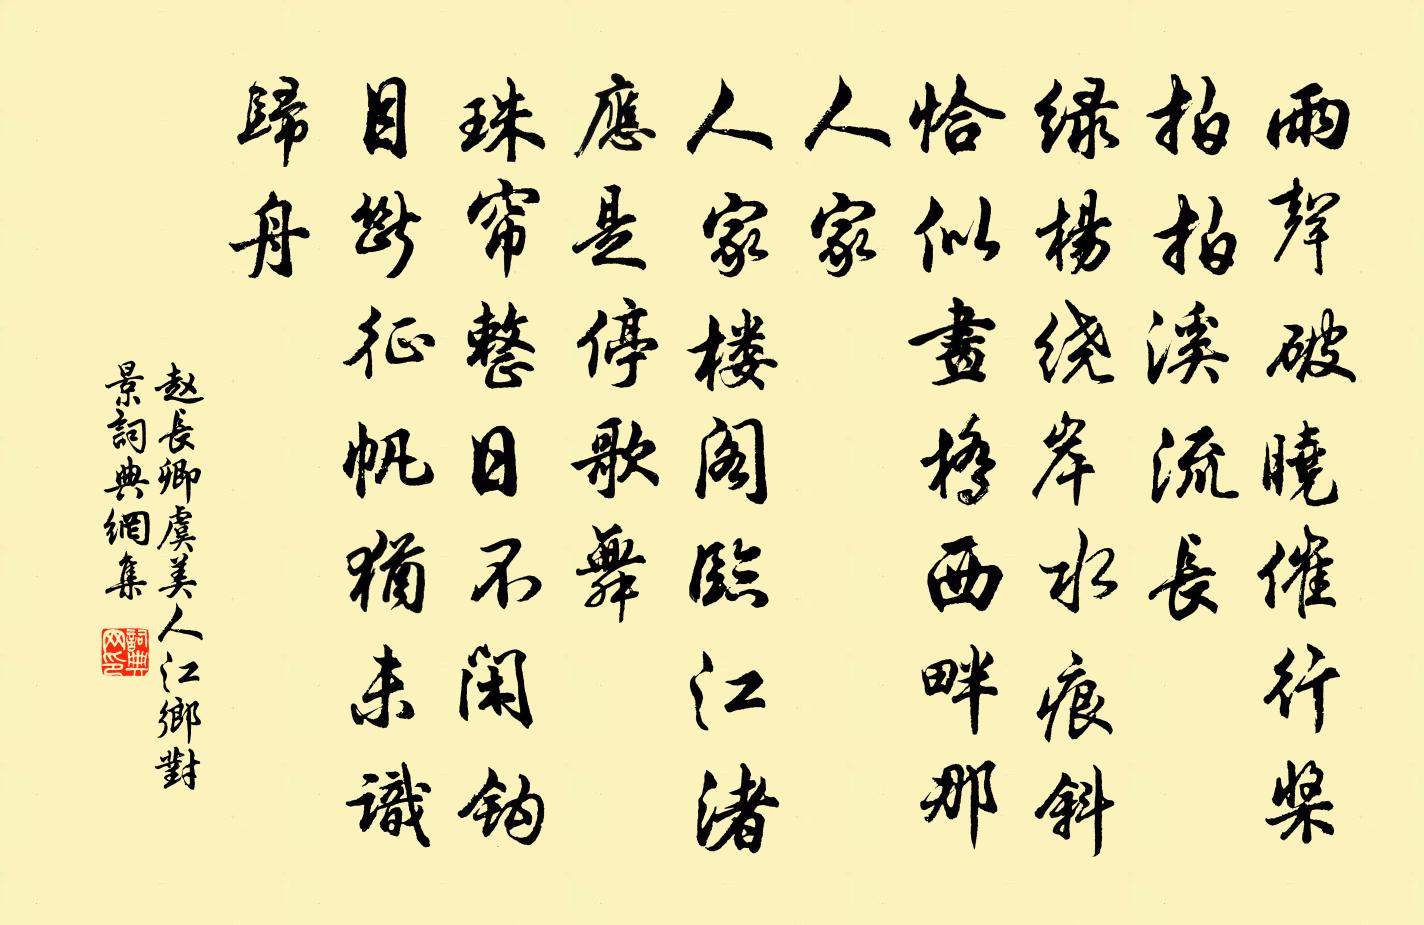 雨聲破曉催行桨
拍拍溪流長
緑楊绕岸水痕斜
恰似畫橋西畔那
人家
人家楼阁臨江渚
應是停歌舞
珠帘整日不闲钩
目斷征帆猶未識
歸舟
赵長卿虞美人江鄉對
景詞典網集
詞典网印